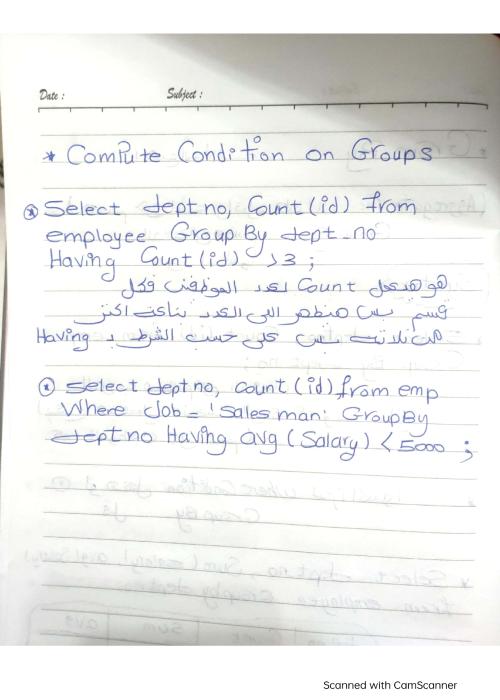 Date :
Subject :
* Compute Condition on Groups
* Select dept no, Count (id) from
employee Group By dept_no
Having Count (id) >3 ;
هو هيعمل Count لعدد الموظفين فكل
قسم بس هيظهر اللى العدد بتاعه اكتر
من تلاته بس على حسب الشرط بـ Having
* Select dept no, count (id) from emp
Where Job = 'Sales man' Group By
dept no Having avg (Salary) < 5000 ;
Scanned with CamScanner